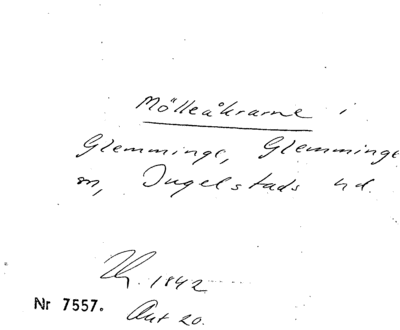 Mölleåkrarne i
Glemminge, Glemminge
sn, Ingelstads hd.
1842
Nr 7557. Akt 20.